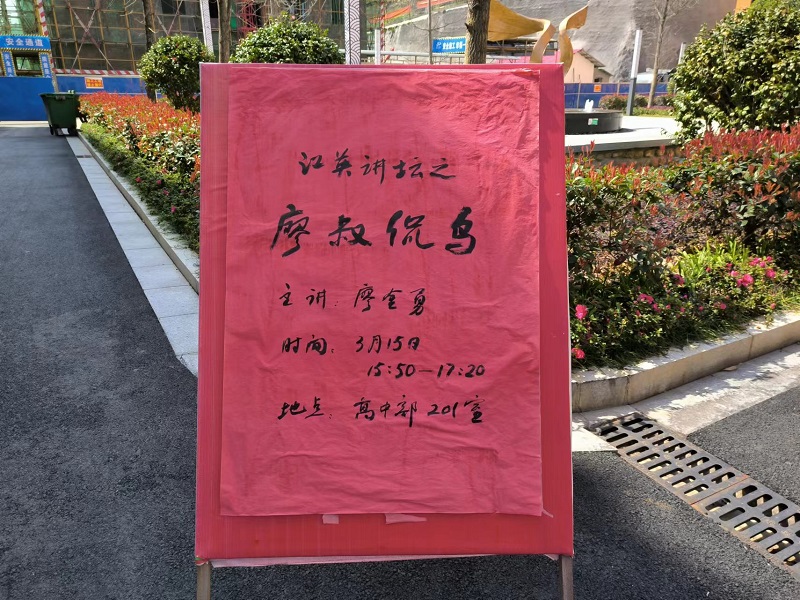 安全通道
江英讲坛之
廖叔侃鸟
主讲:廖全勇
时间:3月15日
15:50—17:20
地点:高中部201室